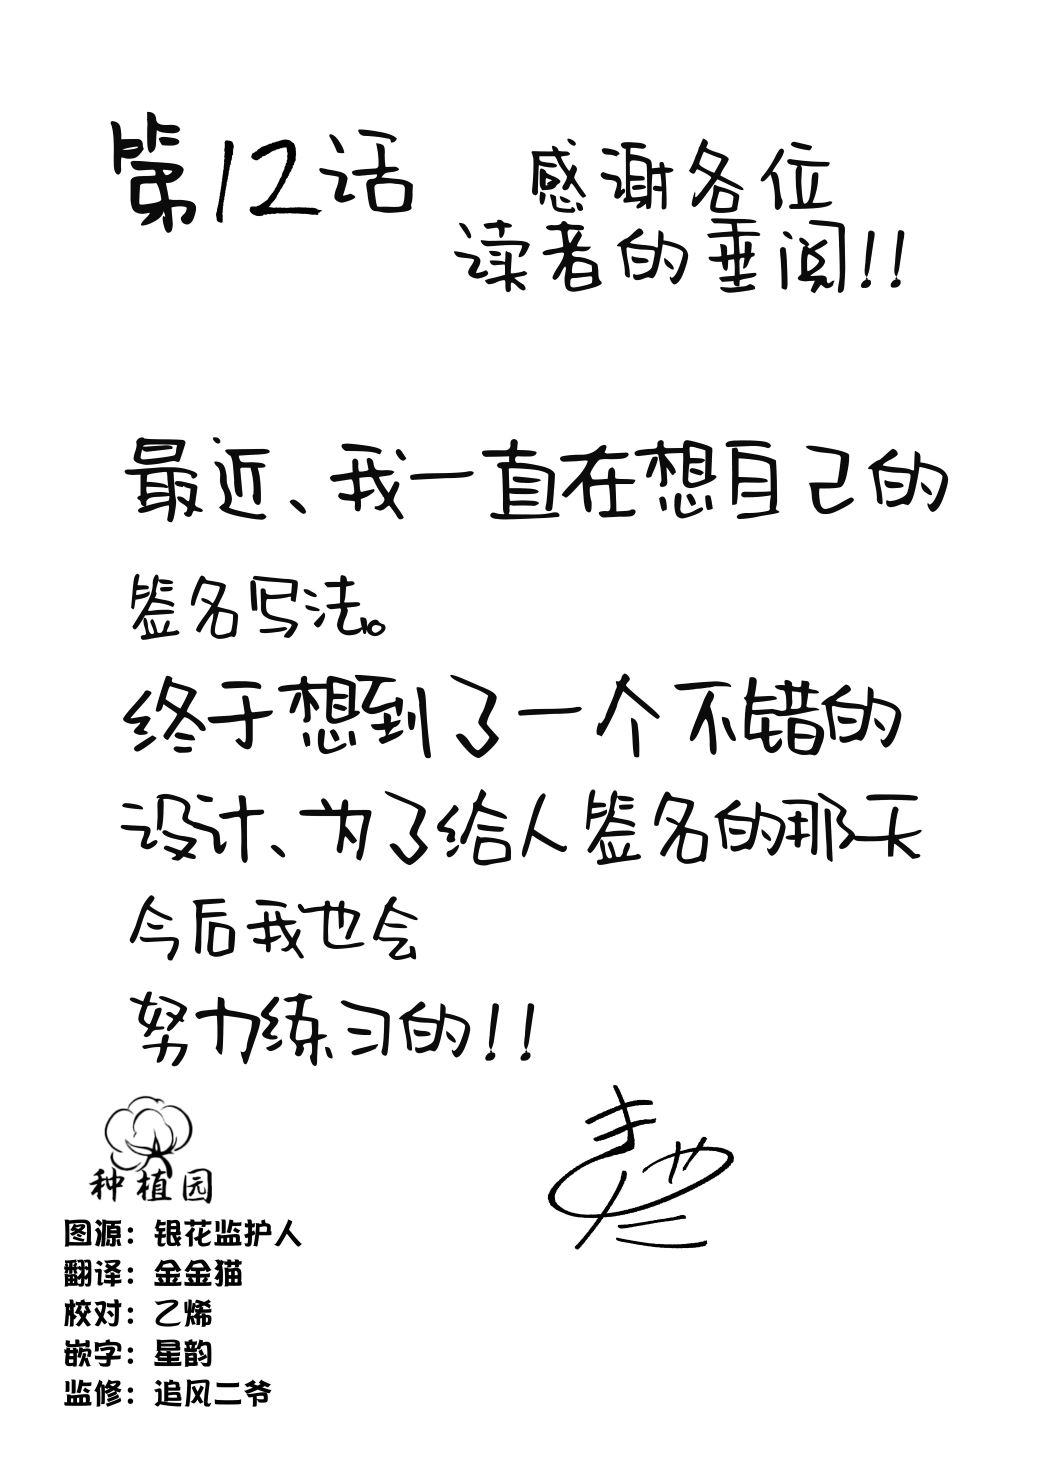 第12话
感谢各位
读者的垂阅!!
最近、我一直在想自己的
签名写法。
终于想到了一个不错的
设计、为了给人签名的那天
今后我也会
努力练习的!!
种植园
图源：银花监护人
翻译：金金猫
校对：乙烯
嵌字：星韵
监修：追风二爷